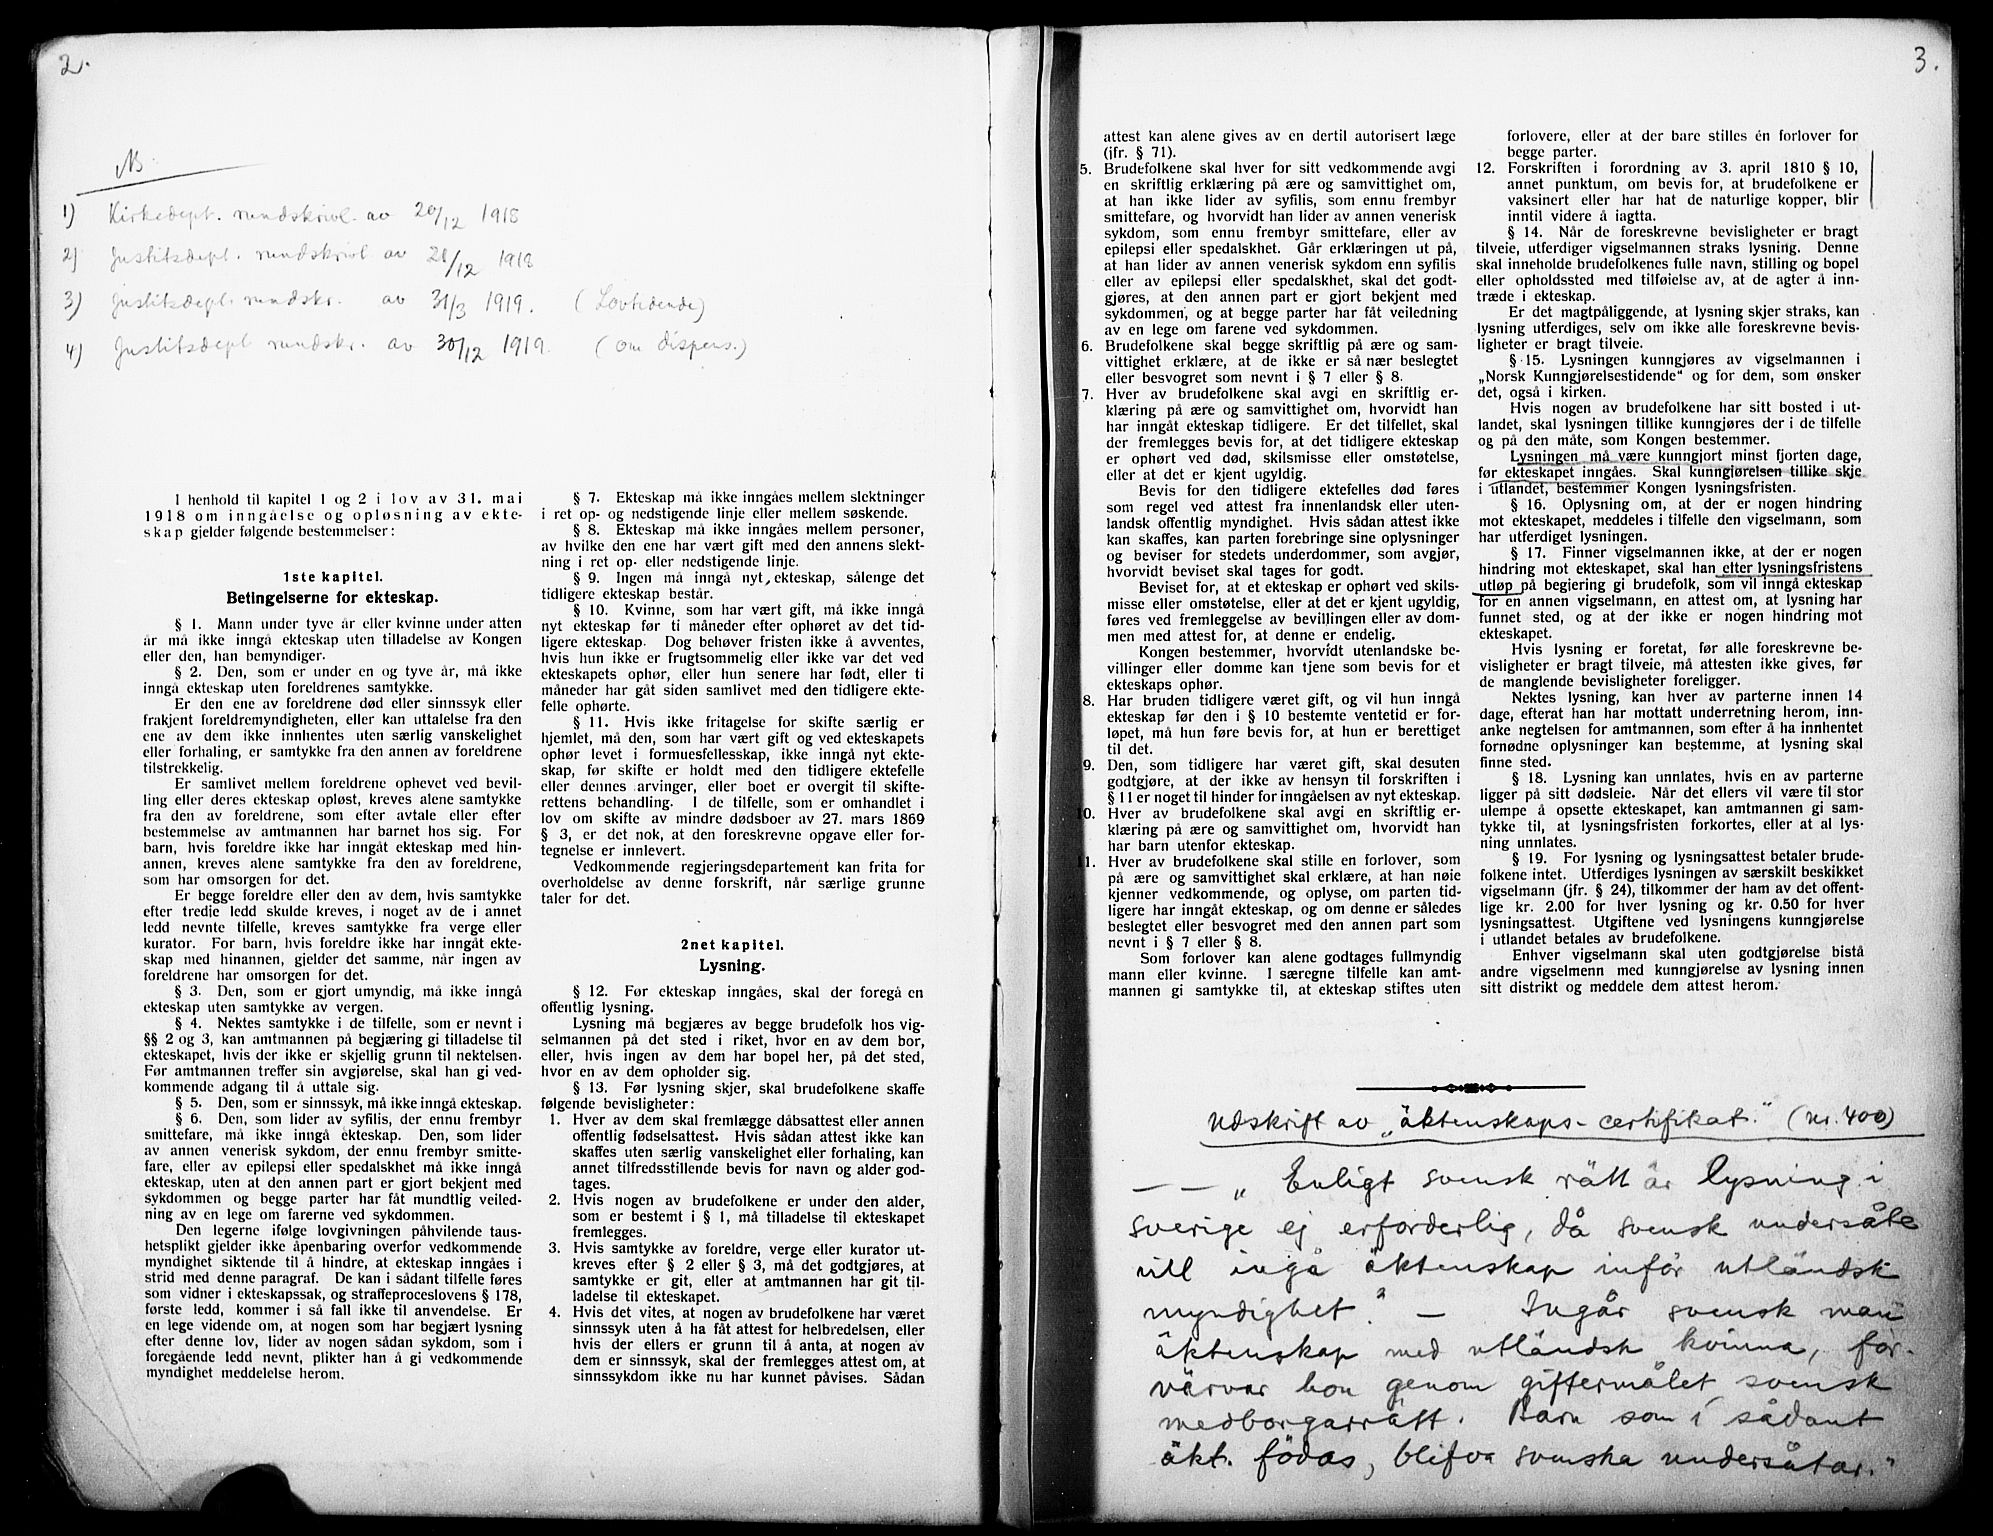 2.
NB
1) Kirkedept. rundskriv. av 20/12 1918
2) Justitsdept. rundskriv av 20/12 1918
3) Justitsdept. rundskr. av 31/3 1919. (Lovtidende)
4) Justitsdept rundskr. av 30/12 1919. (om dispens.)
I henhold til kapitel 1 og 2 i lov av 31. mai
1918 om inngåelse og opløsning av ekte-
skap gjelder følgende bestemmelser:
1ste kapitel.
Betingelserne for ekteskap.
§ 1. Mann under tyve år eller kvinne under atten
år må ikke inngå ekteskap uten tilladelse av Kongen
eller den, han bemyndiger.
§ 2. Den, som er under en og tyve år, må ikke
inngå ekteskap uten foreldrenes samtykke.
Er den ene av foreldrene død eller sinnssyk eller
frakjent foreldremyndigheten, eller kan uttalelse fra den
ene av dem ikke innhentes uten særlig vanskelighet
eller forhaling, er samtykke fra den annen av foreldrene
tilstrekkelig.
Er samlivet mellem foreldrene ophevet ved bevil-
ling eller deres ekteskap opløst, kreves alene samtykke
fra den av foreldrene, som efter avtale eller efter
bestemmelse av amtmannen har barnet hos sig. For
barn, hvis foreldre ikke har inngåt ekteskap med hin-
annen, kreves alene samtykke fra den av foreldrene,
som har omsorgen for det.
Er begge foreldre eller den av dem, hvis samtykke
efter tredje ledd skulde kreves, i noget av de i annet
ledd nevnte tilfelle, kreves samtykke fra verge eller
kurator. For barn, hvis foreldre ikke har inngåt ekte-
skap med hinannen, gjelder det samme, når ingen av
foreldrene har omsorgen for det.
§ 3. Den, som er gjort umyndig, må ikke inngå
ekteskap uten samtykke av vergen.
§ 4. Nektes samtykke i de tilfelle, som er nevnt i
§§ 2 og 3, kan amtmannen på begjæring gi tilladelse til
ekteskapet, hvis der ikke er skjellig grunn til nektelsen.
Før amtmannen treffer sin avgjørelse, skal han gi ved-
kommende adgang til å uttale sig.
§ 5. Den, som er sinnssyk, må ikke inngå ekteskap.
§ 6. Den, som lider av syfilis, der ennu frembyr
smittefare, må ikke inngå ekteskap. Den, som lider
av annen venerisk sykdom, der ennu frembyr smitte-
fare, eller av epilepsi eller spedalskhet må ikke inngå
ekteskap, uten at den annen part er gjort bekjent med
sykdommen og begge parter har fåt mundtlig veiled-
ning av en lege om farerne ved sykdommen.
Den legerne ifølge lovgivningen påhvilende taus-
hetsplikt gjelder ikke åpenbaring overfor vedkommende
myndighet siktende til å hindre, at ekteskap inngåes i
strid med denne paragraf. De kan i sådant tilfelle føres
som vidner i ekteskapssak, og straffeproceslovens § 178,
første ledd, kommer i så fall ikke til anvendelse. Er
en lege vidende om, at nogen som har begjært lysning
efter denne lov, lider av nogen sådan sykdom, som i
foregående ledd nevnt, plikter han å gi vedkommende
myndighet meddelelse herom.
§ 7. Ekteskap må ikke inngåes mellem slektninger
i ret op- og nedstigende linje eller mellem søskende.
§ 8. Ekteskap må ikke inngåes mellem personer,
av hvilke den ene har vært gift med den annens slekt-
ning i ret op- eller nedstigende linje.
§ 9. Ingen må inngå nyt ekteskap, sålenge det
tidligere ekteskap består.
§ 10. Kvinne, som har vært gift, må ikke inngå
nyt ekteskap før ti måneder efter ophøret av det tid-
ligere ekteskap. Dog behøver fristen ikke å avventes,
hvis hun ikke er frugtsommelig eller ikke var det ved
ekteskapets ophør, eller hun senere har født, eller ti
måneder har gåt siden samlivet med den tidligere ekte-
felle ophørte.
§ 11. Hvis ikke fritagelse for skifte særlig er
hjemlet, må den, som har vært gift og ved ekteskapets
ophør levet i formuesfellesskap, ikke inngå nyt ekte-
skap, før skifte er holdt med den tidligere ektefelle
eller dennes arvinger, eller boet er overgit til skifte-
rettens behandling. I de tilfelle, som er omhandlet i
lov om skifte av mindre dødsboer av 27. mars 1869
§ 3, er det nok, at den foreskrevne opgave eller for-
tegnelse er innlevert.
Vedkommende regjeringsdepartement kan frita for
overholdelse av denne forskrift, når særlige grunne
taler for det.
2net kapitel.
Lysning.
§ 12. Før ekteskap inngåes, skal der foregå en
offentlig lysning.
Lysning må begjæres av begge brudefolk hos vig-
selmannen på det sted i riket, hvor en av dem bor,
eller, hvis ingen av dem har bopel her, på det sted,
hvor en av dem opholder sig.
§ 13. Før lysning skjer, skal brudefolkene skaffe
følgende bevisligheter:
1. Hver av dem skal fremlægge dåbsattest eller annen
offentlig fødselsattest. Hvis sådan attest ikke kan
skaffes uten særlig vanskelighet eller forhaling, kan
annet tilfredsstillende bevis for navn og alder god-
tages.
2. Hvis nogen av brudefolkene er under den alder,
som er bestemt i § 1, må tilladelse til ekteskapet
fremlegges.
3. Hvis samtykke av foreldre, verge eller kurator ut-
kreves efter § 2 eller § 3, må det godtgjøres, at
samtykke er git, eller at amtmannen har git til-
ladelse til ekteskapet.
4. Hvis det vites, at nogen av brudefolkene har været
sinnssyk uten å ha fåt attest for helbredelsen, eller
hvis der ellers er grunn til å anta, at nogen av
dem er sinnssyk, skal der fremlegges attest om, at
sinnssykdom ikke nu har kunnet påvises. Sådan
3.
attest kan alene gives av en dertil autorisert læge
(jfr. § 71).
5. Brudefolkene skal hver for sitt vedkommende avgi
en skriftlig erklæring på ære og samvittighet om,
at han ikke lider av syfilis, som ennu frembyr
smittefare, og hvorvidt han lider av annen venerisk
sykdom, som ennu frembyr smittefare, eller av
epilepsi eller spedalskhet. Går erklæringen ut på,
at han lider av annen venerisk sykdom enn syfilis
eller av epilepsi eller spedalskhet, skal det godt-
gjøres, at den annen part er gjort bekjent med
sykdommen, og at begge parter har fåt veiledning
av en lege om farene ved sykdommen.
6. Brudefolkene skal begge skriftlig på ære og sam-
vittighet erklære, at de ikke er så nær beslegtet
eller besvogret som nevnt i § 7 eller § 8.
7. Hver av brudefolkene skal avgi en skriftlig er-
klæring på ære og samvittighet om, hvorvidt han
har inngåt ekteskap tidligere. Er det tilfellet, skal
der fremlegges bevis for, at det tidligere ekteskap
er ophørt ved død, skilsmisse eller omstøtelse,
eller at det er kjent ugyldig.
Bevis for den tidligere ektefelles død føres
som regel ved attest fra innenlandsk eller uten-
landsk offentlig myndighet. Hvis sådan attest ikke
kan skaffes, kan parten forebringe sine oplysninger
og beviser for stedets underdommer, som avgjør,
hvorvidt beviset skal tages for godt.
Beviset for, at et ekteskap er ophørt ved skils-
misse eller omstøtelse, eller at det er kjent ugyldig,
føres ved fremleggelse av bevillingen eller av dom-
men med attest for, at denne er endelig.
Kongen bestemmer, hvorvidt utenlandske be-
villinger eller domme kan tjene som bevis for et
ekteskaps ophør.
8. Har bruden tidligere været gift, og vil hun inngå
ekteskap før den i § 10 bestemte ventetid er for-
løpet, må hun føre bevis for, at hun er berettiget
til det.
9. Den, som tidligere har været gift, skal desuten
godtgjøre, at der ikke av hensyn til forskriften i
§ 11 er noget til hinder for inngåelsen av nyt ekteskap.
10. Hver av brudefolkene skal avgi en skriftlig er-
klæring på ære og samvittighet om, hvorvidt han
har barn utenfor ekteskap.
11. Hver av brudefolkene skal stille en forlover, som
på ære og samvittighet skal erklære, at han nøie
kjenner vedkommende, og oplyse, om parten tid-
ligere har inngåt ekteskap, og om denne er således
beslegtet eller besvogret med den annen part som
nevnt i § 7 eller § 8.
Som forlover kan alene godtages fullmyndig
mann eller kvinne. I særegne tilfelle kan amt-
mannen gi samtykke til, at ekteskap stiftes uten
forlovere, eller at der bare stilles én forlover for
begge parter.
12. Forskriften i forordning av 3. april 1810 § 10,
annet punktum, om bevis for, at brudefolkene er
vaksinert eller har hat de naturlige kopper, blir
inntil videre å iagtta.
§ 14. Når de foreskrevne bevisligheter er bragt
tilveie, utferdiger vigselmannen straks lysning. Denne
skal inneholde brudefolkenes fulle navn, stilling og bopel
eller opholdssted med tilføielse av, at de agter å inn-
træde i ekteskap.
Er det magtpåliggende, at lysning skjer straks, kan
lysning utferdiges, selv om ikke alle foreskrevne bevis-
ligheter er bragt tilveie.
§ 15. Lysningen kunngjøres av vigselmannen i
„Norsk Kunngjørelsestidende“ og for dem, som ønsker
det, også i kirken.
Hvis nogen av brudefolkene har sitt bosted i ut-
landet, skal lysningen tillike kunngjøres der i de tilfelle
og på den måte, som Kongen bestemmer.
Lysningen må være kunngjort minst fjorten dage,
før ekteskapet inngåes. Skal kunngjørelsen tillike skje
i utlandet, bestemmer Kongen lysningsfristen.
§ 16. Oplysning om, at der er nogen hindring
mot ekteskapet, meddeles i tilfelle den vigselmann, som
har utferdiget lysningen.
§ 17. Finner vigselmannen ikke, at der er nogen
hindring mot ekteskapet, skal han efter lysningsfristens
utløp på begjering gi brudefolk, som vil inngå ekteskap
for en annen vigselmann, en attest om, at lysning har
funnet sted, og at der ikke er nogen hindring mot
ekteskapet.
Hvis lysning er foretat, før alle foreskrevne be-
visligheter er bragt tilveie, må attesten ikke gives, før
de manglende bevisligheter foreligger.
Nektes lysning, kan hver av parterne innen 14
dage, efterat han har mottatt underretning herom, inn-
anke negtelsen for amtmannen, som efter å ha innhentet
fornødne oplysninger kan bestemme, at lysning skal
finne sted.
§ 18. Lysning kan unnlates, hvis en av parterne
ligger på sitt dødsleie. Når det ellers vil være til stor
ulempe å opsette ekteskapet, kan amtmannen gi sam-
tykke til, at lysningsfristen forkortes, eller at al lys-
ning unnlates.
§ 19. For lysning og lysningsattest betaler brude-
folkene intet. Utferdiges lysningen av særskilt beskikket
vigselmann (jfr. § 24), tilkommer der ham av det offent-
lige kr. 2.00 for hver lysning og kr. 0.50 for hver
lysningsattest. Utgiftene ved lysningens kunngjørelse
i utlandet betales av brudefolkene.
Enhver vigselmann skal uten godtgjørelse bistå
andre vigselmenn med kunngjørelse av lysning innen
sitt distrikt og meddele dem attest herom.
Udskrift av „äktenskaps-certifikat." (nr. 400)
— — „Enligt svensk rätt är lysning i
Sverige ej erforderlig, då svensk undersåte
vill ingå äktenskap inför utländsk
myndighet." — Ingår svensk man
äktenskap med utländsk kvinna, för-
värvar hon genom giftermålet svensk
medborgarrätt. Barn som i sådant
äkt. födas, blifva svenska undersåtar."